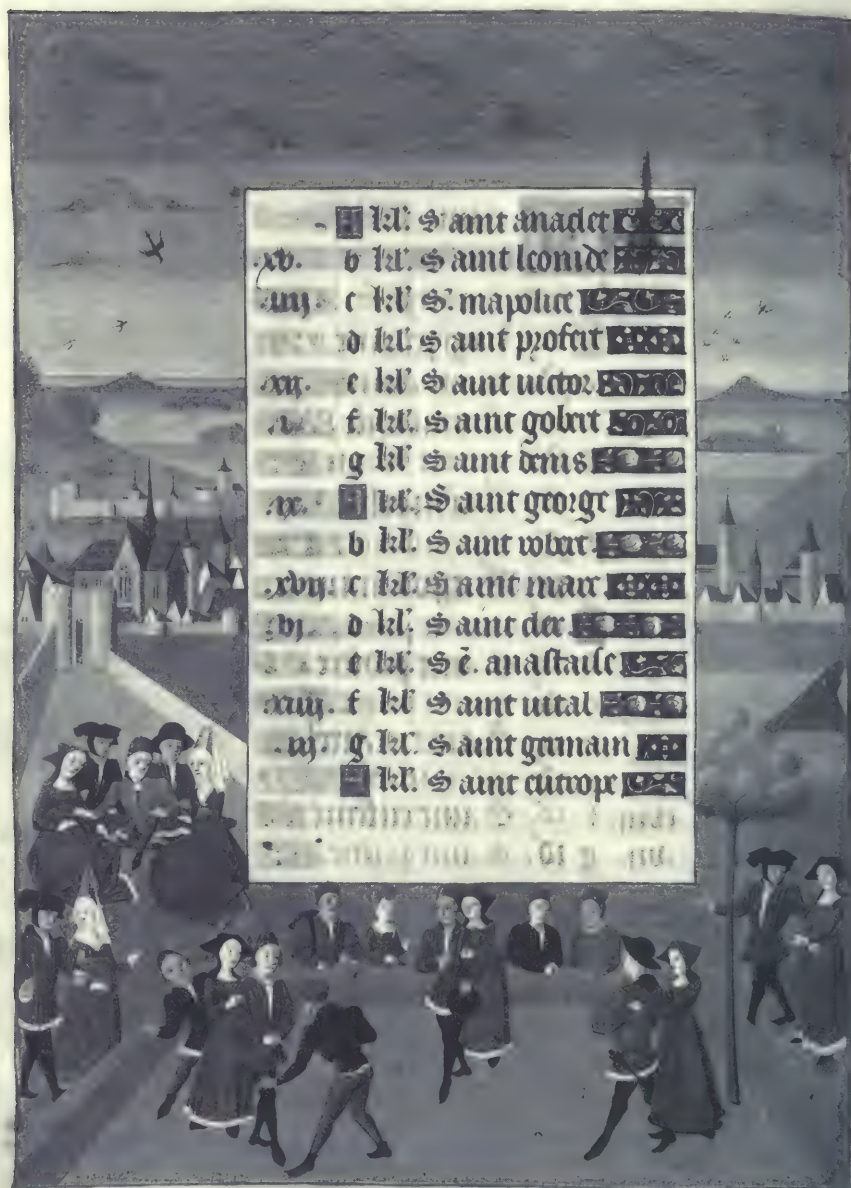 A kl'. Saint anaclet
.xv. b kl'. Saint leonide
.iiij. c kl' S'. mapolice
d kl'. Saint profeit
.xij. e kl'. Saint uictor
.i. f kl'. Saint gobert
g kl' Saint denis
.ix. A kl'. Saint george
b kl'. Saint robert
.xvij. c kl'. Saint marc
.vj. d kl'. Saint cler
e kl'. S ē. anastaise
.xiiij. f kl' Saint uital
.iij. g kl'. Saint germain
A kl'. Saint eutrope